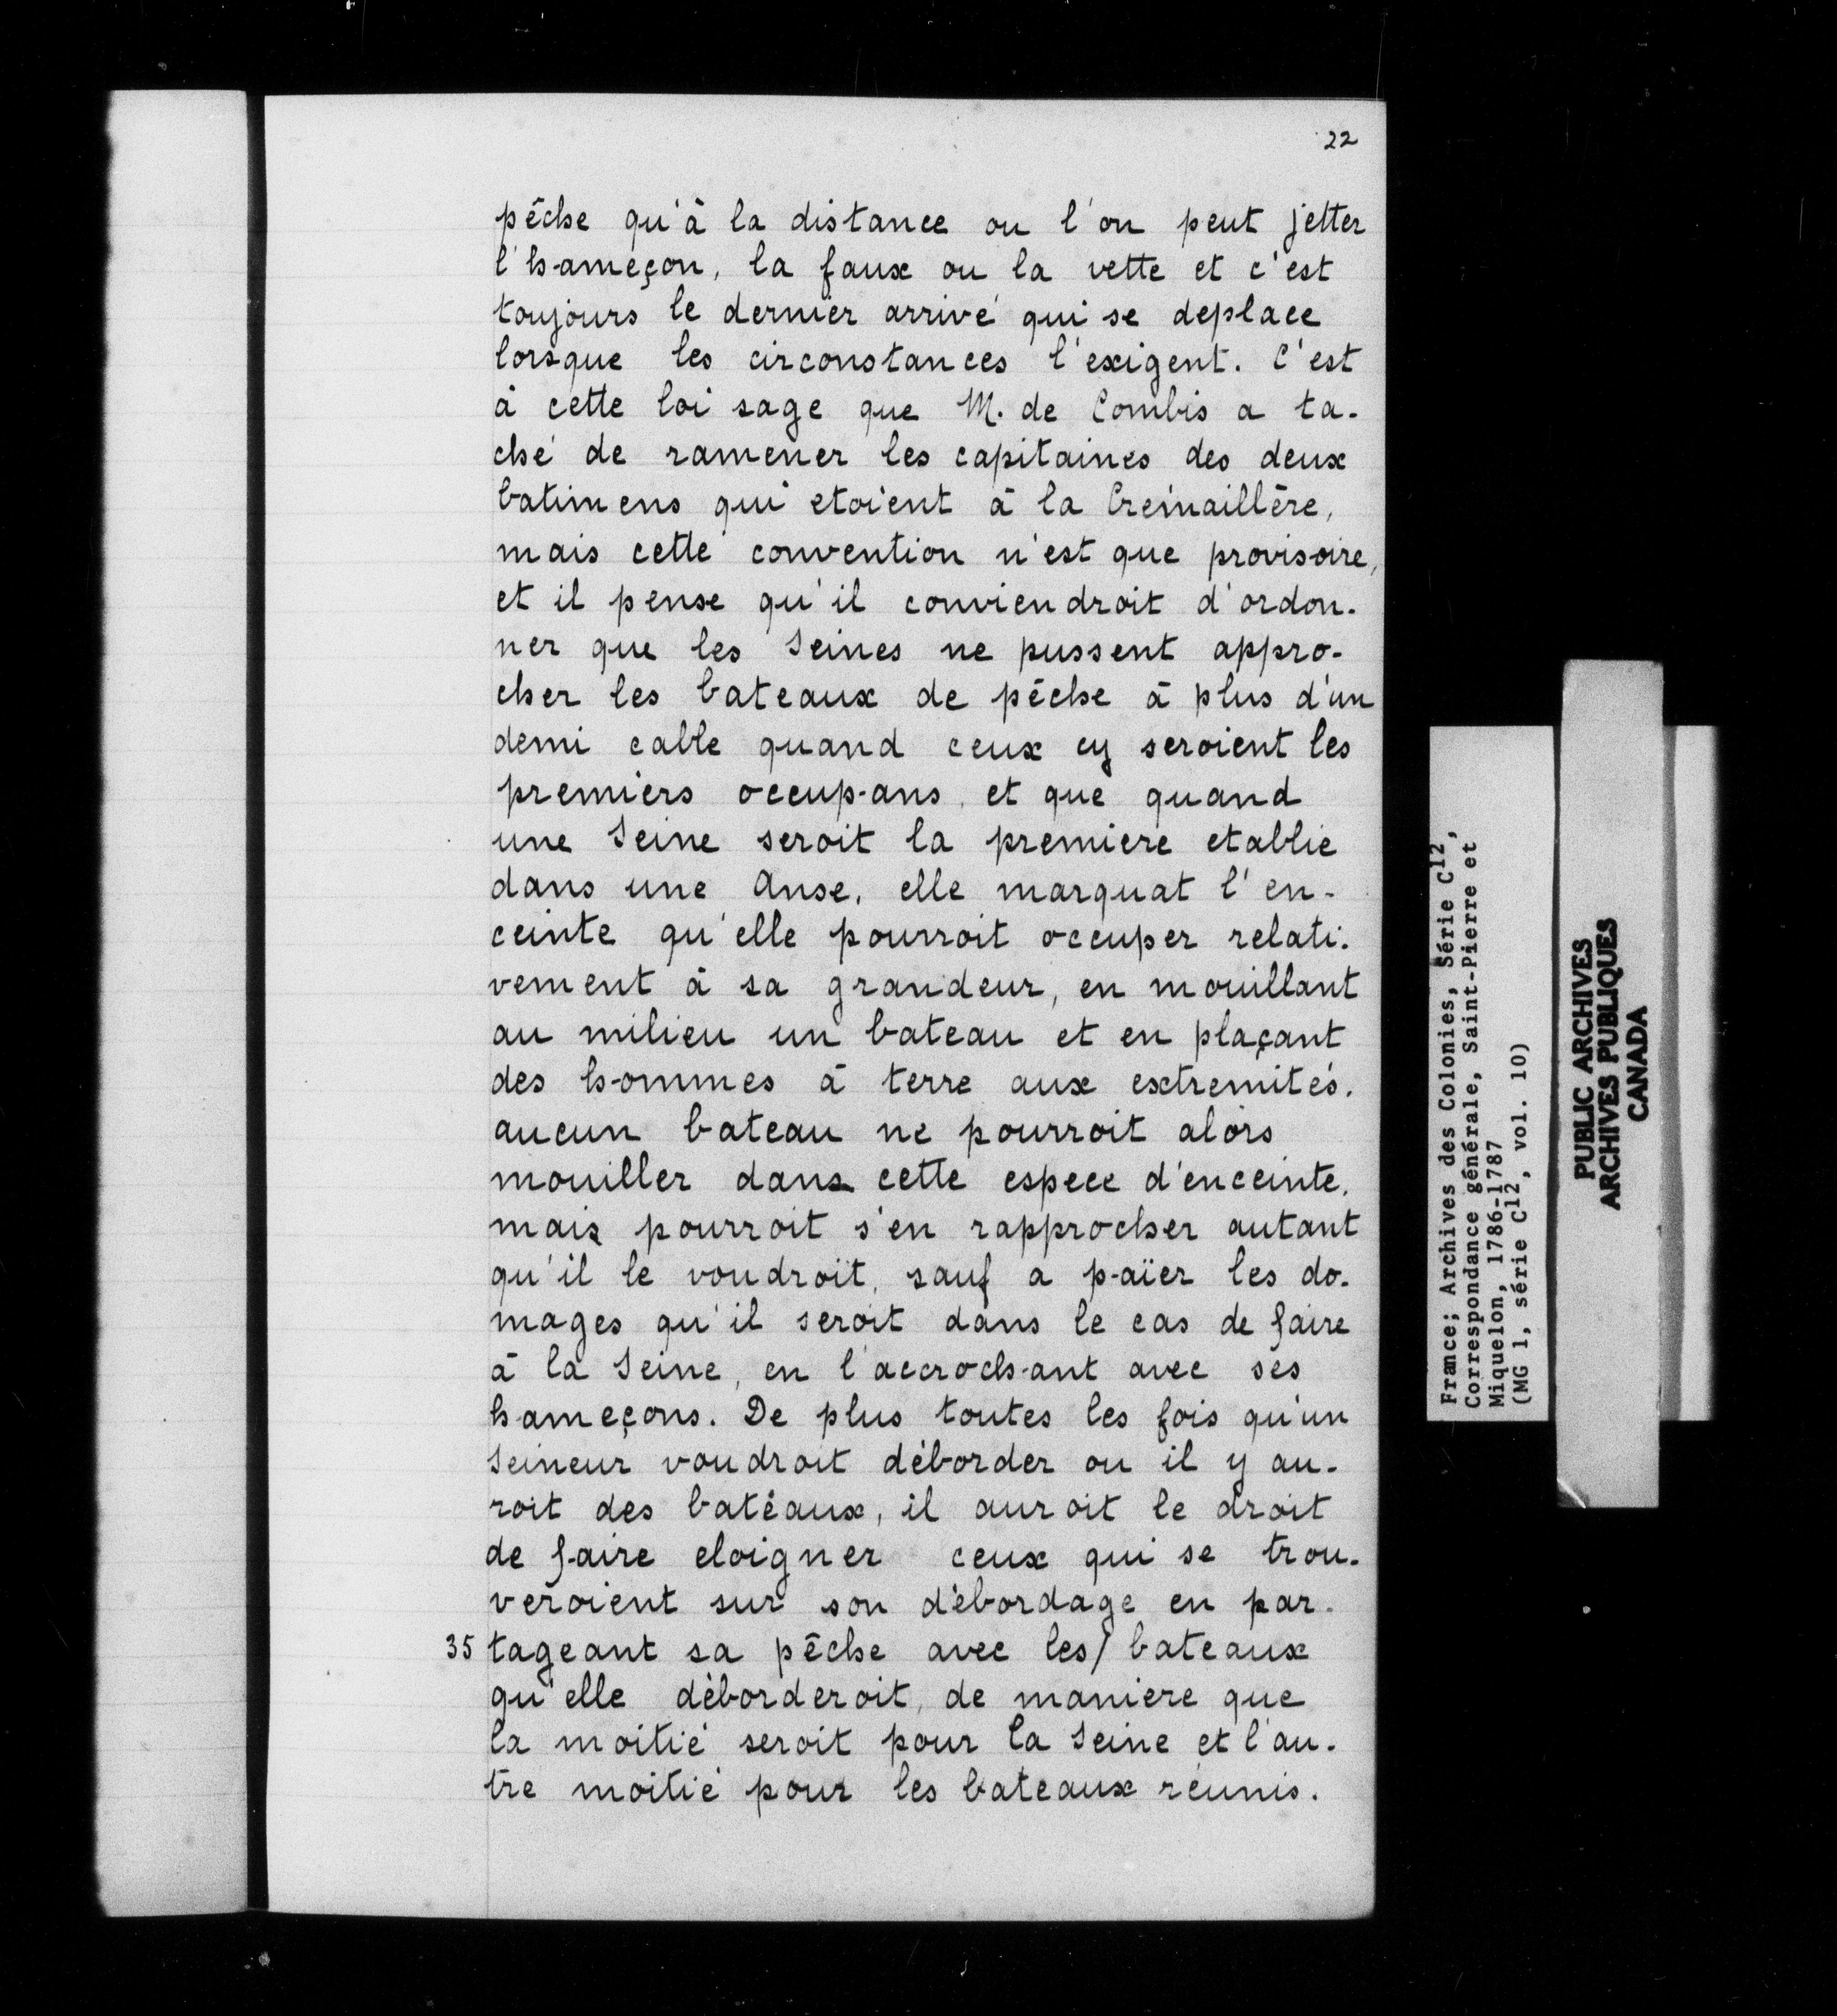 22
pêche qu'à la distance ou l'on peut jetter
l'hameçon, la faux ou la vette et c'est
toujours le dernier arrivé qui se deplace
lorsque les circonstances l'exigent. C'est
à cette loi sage que M. de Combis a ta-
ché de ramener les capitaines des deux
batimens qui etoient à la Crémaillère,
mais cette convention n'est que provisoire,
et il pense qu'il conviendroit d'ordon-
ner que les Seines ne pussent appro-
cher les bateaux de pêche à plus d'un
demi cable quand ceux cy seroient les
premiers occupans, et que quand
une Seine seroit la premiere etablie
dans une Anse, elle marquat l'en-
ceinte qu'elle pourroit occuper relati-
vement à sa grandeur, en mouillant
au milieu un bateau et en plaçant
des hommes à terre aux extremités.
aucun bateau ne pourroit alors
mouiller dans cette espece d'enceinte,
mais pourroit s'en rapprocher autant
qu'il le voudroit, sauf a païer les do-
mages qu'il seroit dans le cas de faire
à la Seine, en l'accrochant avec ses
hameçons. De plus toutes les fois qu'un
Seineur voudroit déborder ou il y au-
roit des batéaux, il auroit le droit
de faire eloigner ceux qui se trou-
veroient sur son débordage en par-
35 tageant sa pêche avec les/ bateaux
qu'elle déborderoit, de maniere que
la moitié seroit pour la Seine et l'au-
tre moitié pour les bateaux réunis.
France; Archives des Colonies, Série C12,
Correspondance générale, Saint-Pierre et
Miquelon, 1786-1787
(MG 1, série C12, vol. 10)
PUBLIC ARCHIVES
ARCHIVES PUBLIQUES
CANADA